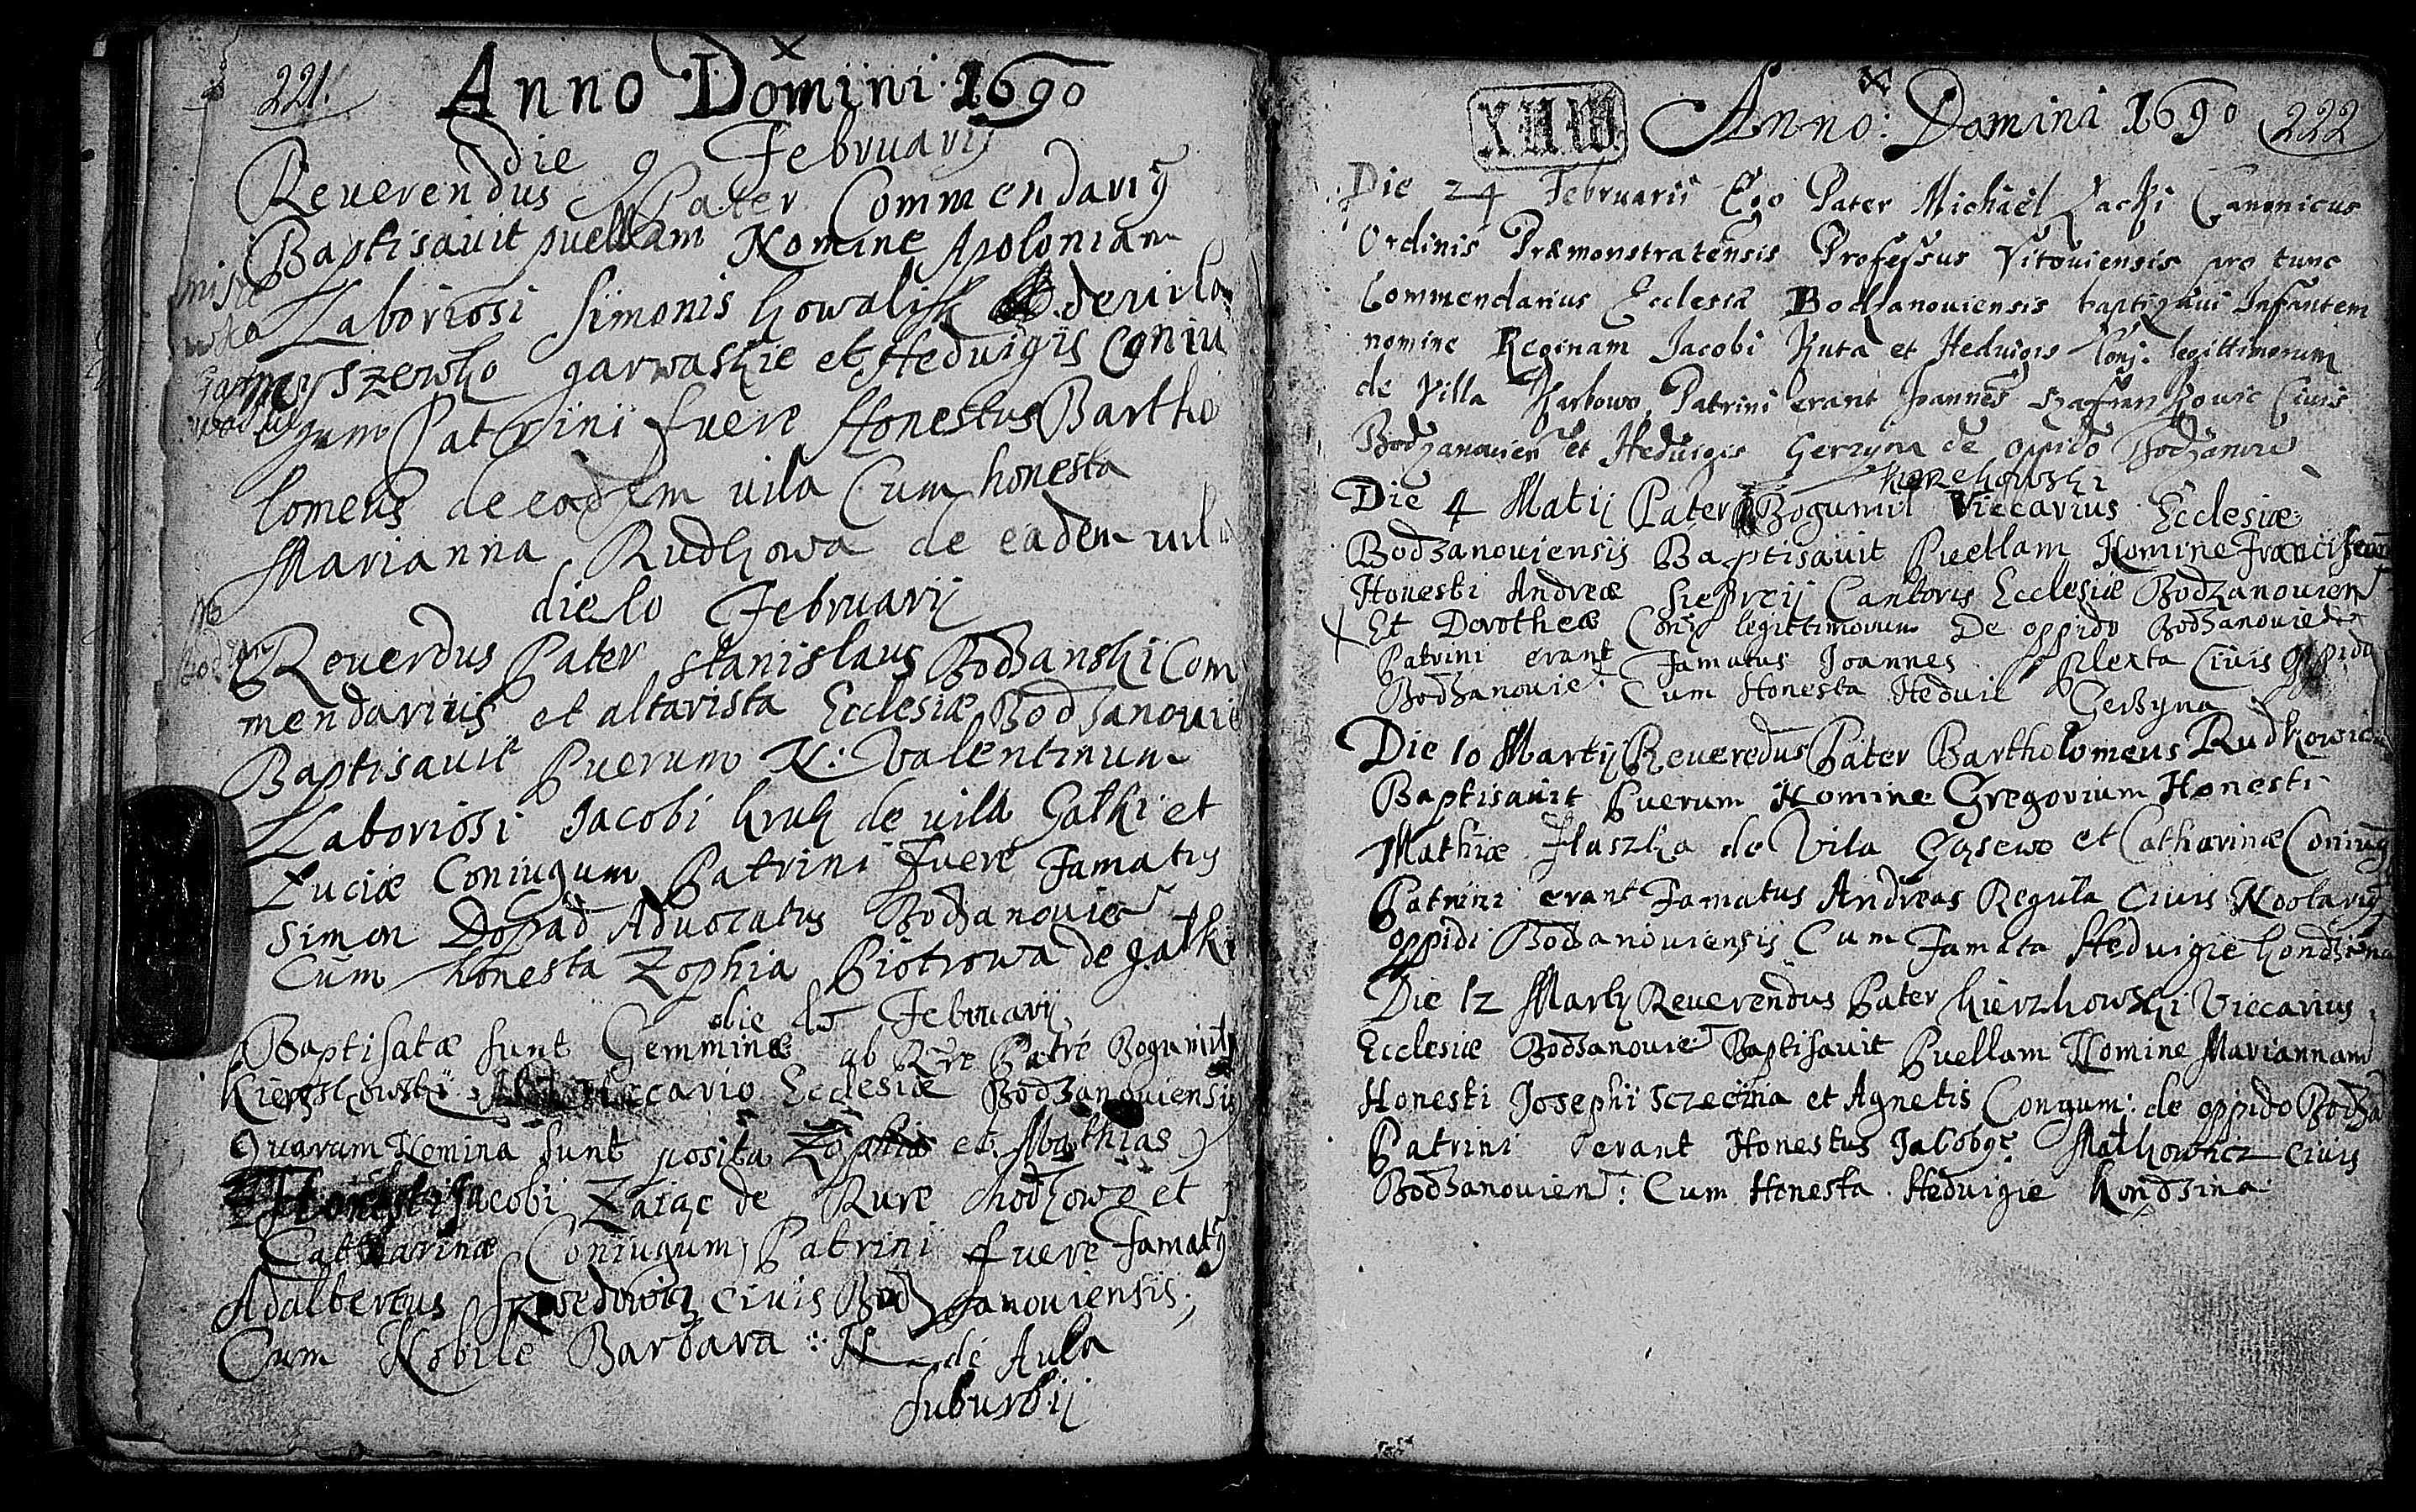 221. Anno Domini 1690
die 9 Februarij
Reverendus Pater Commendariꝰ
Baptisavit puellam Nomine Apolonian
Laboriosi Simonis howalik de vila
myszewko garwaskie et Hedvigis Coniu
gum Patrini fuere Honestus Bartho
lomeus de eadem vila Cum honesta
Marianna Rudkowa de eadem vila
die 10 Februarij
Reverdus Pater Stanislaus Bodzanski Com
mendarius et altarista Ecclesiæ Bodzanovie
Baptisavit Puerum N: Valentinum
Laboriosi Jacobi kruk de vila Gatki et
Luciæ Coniugum Patrini fuere Famatus
Simon Dopad Advocatus Bodzanovie
Cum honesta Zophia Piotrowa de gatki
die Februarij
Baptisatæ sunt Geminæ ab Rde Patre Bogumilo
Kierzkowski Viccario Ecclesiæ Bodzanoviensis
Quarum Nomina sunt posita Zophia et Mathias
Honesti Jacobi Zaiąc de Rure Chodkowo et
Catharinæ Coniugum, Patrini fuere Famatꝰ
Adalbertus civis Bodzanoviensis,
Cum Nobile Barbara : N de Aula
suburbij
Anno: Domini 1690 222
Die 24 Februarii Ego Pater Michael Łacki Canonicus
Ordinis Præmonstratensis Professus Vitoviensis pro tunc
Commendarius Ecclesiæ Bodzanoviensis baptizavi Infantem
nomine Reginam Jacobi Kuta et Hedvigis Conj: legittimorum
de Villa Karbowo Patrini erant Joannes Civis
Bodzanovien et Hedvigis Gerzyna de oppido Bodzanow
kierzkowski
Die 4 Matij Pater Bogumil Viccarius Ecclesiæ
Bodzanoviensis Baptisavit Puellam Nomine Franciscam
Honesti Andreæ Cantoris Ecclesiæ Bodzanovien
Et Dorotheæ Conj legittimorum De oppido Bodzanovie
Patrini erant Famatus Joannes Plexta Civis oppido
Bodzanovie: Cum Honesta Hedvi Gerzyna
Die 10 Martij Reveredus Pater Bartholomeus Rudkowic
Baptisavit Puerum Nomine Gregorium Honesti
Mathiæ Fluszka de Vila Gąsewo et Catharinæ Coniug
Patrini erant Famatus Andreas Reguła Civis Nootariꝰ
oppidi Bodzanoviensis Cum Famata Hedvigie kondzina
Die 12 Martij Reverendus Pater kierzkowski Viccarius
Ecclesiæ Bodzanovie Baptisavit Puellam Nomine Mariannam
Honesti Josephi Sczecina et Agnetis Congum: de oppido Bodza
Patrini erant Honestus Jacobꝰ Matkowicz civis
Bodzanovien: Cum Honesta Hedvigie kondzina